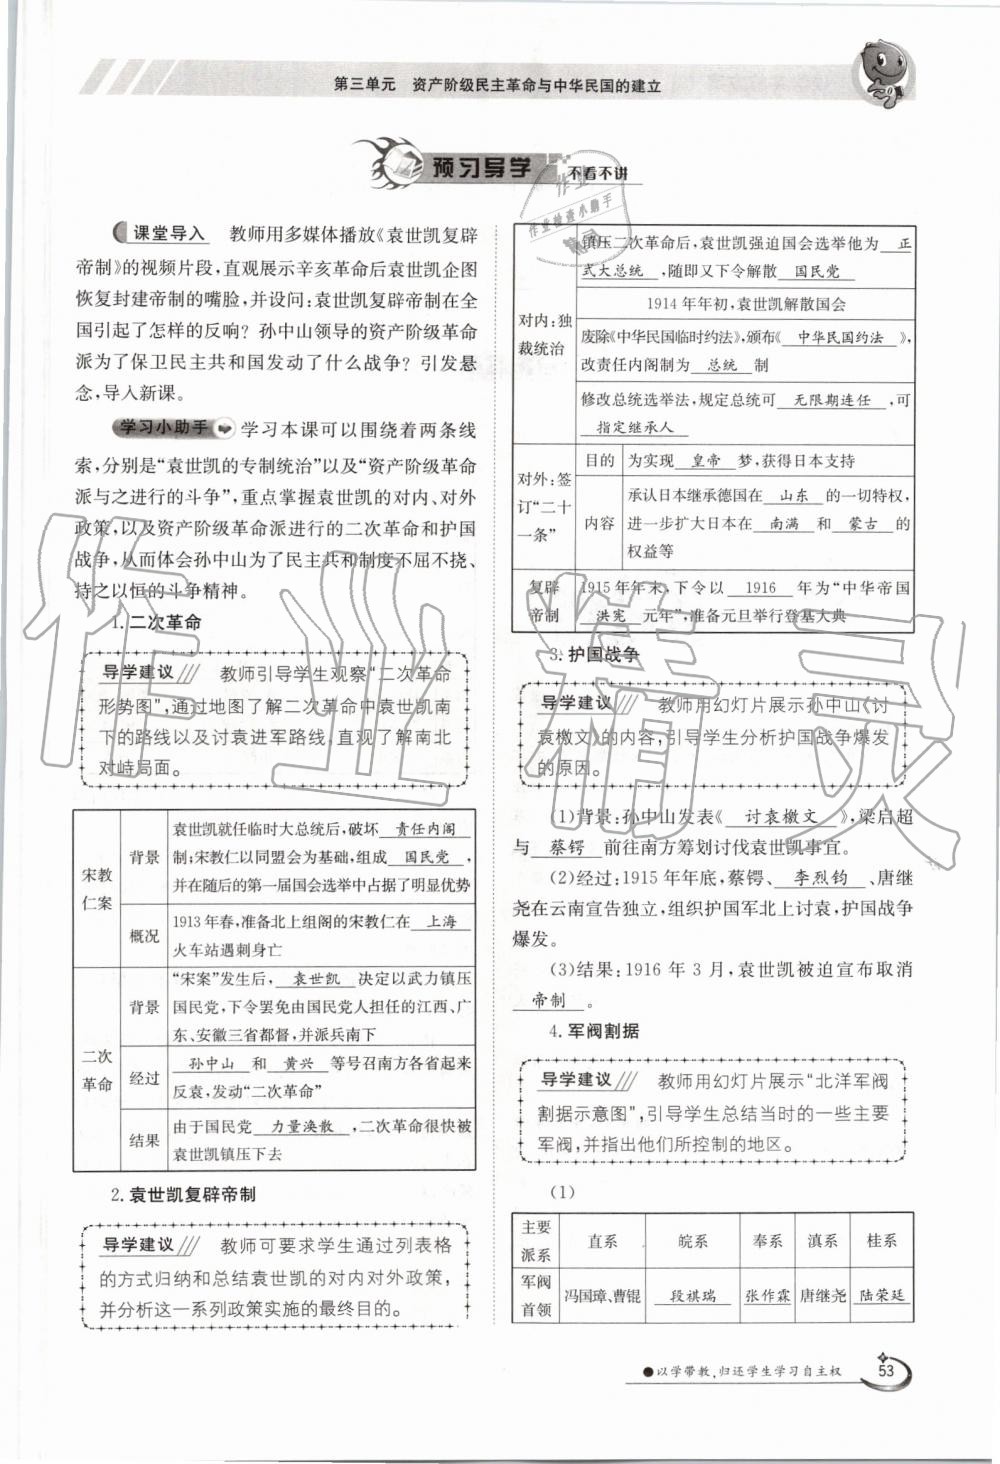 第三单元 资产阶级民主革命与中华民国的建立
预习导学 不看不讲
课堂导入 教师用多媒体播放《袁世凯复辟
帝制》的视频片段,直观展示辛亥革命后袁世凯企图
恢复封建帝制的嘴脸,并设问:袁世凯复辟帝制在全
国引起了怎样的反响? 孙中山领导的资产阶级革命
派为了保卫民主共和国发动了什么战争? 引发悬
念,导入新课。
学习小助手 学习本课可以围绕着两条线
索,分别是“袁世凯的专制统治”以及“资产阶级革命
派与之进行的斗争”,重点掌握袁世凯的对内、对外
政策,以及资产阶级革命派进行的二次革命和护国
战争,从而体会孙中山为了民主共和制度不屈不挠、
持之以恒的斗争精神。
1. 二次革命
导学建议 教师引导学生观察“二次革命
形势图”,通过地图了解二次革命中袁世凯南
下的路线以及讨袁进军路线,直观了解南北
对峙局面。
宋教仁案
背景
袁世凯就任临时大总统后,破坏 责任内阁
制;宋教仁以同盟会为基础,组成 国民党 ,
并在随后的第一届国会选举中占据了明显优势
概况
1913 年春,准备北上组阁的宋教仁在 上海
火车站遇刺身亡
二次革命
背景
“宋案”发生后, 袁世凯 决定以武力镇压
国民党,下令罢免由国民党人担任的江西、广
东、安徽三省都督,并派兵南下
经过
孙中山 和 黄兴 等号召南方各省起来
反袁,发动“二次革命”
结果
由于国民党 力量涣散 ,二次革命很快被
袁世凯镇压下去
2. 袁世凯复辟帝制
导学建议 教师可要求学生通过列表格
的方式归纳和总结袁世凯的对内对外政策,
并分析这一系列政策实施的最终目的。
对内:独裁统治
镇压二次革命后,袁世凯强迫国会选举他为 正
式大总统 ,随即又下令解散 国民党
1914 年年初,袁世凯解散国会
废除《中华民国临时约法》,颁布《 中华民国约法 》,
改责任内阁制为 总统 制
修改总统选举法,规定总统可 无限期连任 ,可
指定继承人
对外:签订“二十一条”
目的 为实现 皇帝 梦,获得日本支持
内容
承认日本继承德国在 山东 的一切特权,
进一步扩大日本在 南满 和 蒙古 的
权益等
复辟帝制
1915 年年末,下令以 1916 年为“中华帝国
洪宪 元年”,准备元旦举行登基大典
3. 护国战争
导学建议 教师用幻灯片展示孙中山《讨
袁檄文》的内容,引导学生分析护国战争爆发
的原因。
(1)背景:孙中山发表《 讨袁檄文 》,梁启超
与 蔡锷 前往南方筹划讨伐袁世凯事宜。
(2)经过:1915 年年底,蔡锷、 李烈钧 、唐继
尧在云南宣告独立,组织护国军北上讨袁,护国战争
爆发。
(3)结果:1916 年 3 月,袁世凯被迫宣布取消
帝制 。
4. 军阀割据
导学建议 教师用幻灯片展示“北洋军阀
割据示意图”,引导学生总结当时的一些主要
军阀,并指出他们所控制的地区。
(1)
主要派系 直系 皖系 奉系 滇系 桂系
军阀首领 冯国璋、曹锟 段祺瑞 张作霖 唐继尧 陆荣廷
●以学带教,归还学生学习自主权
53
作业检查小助手
作业精灵